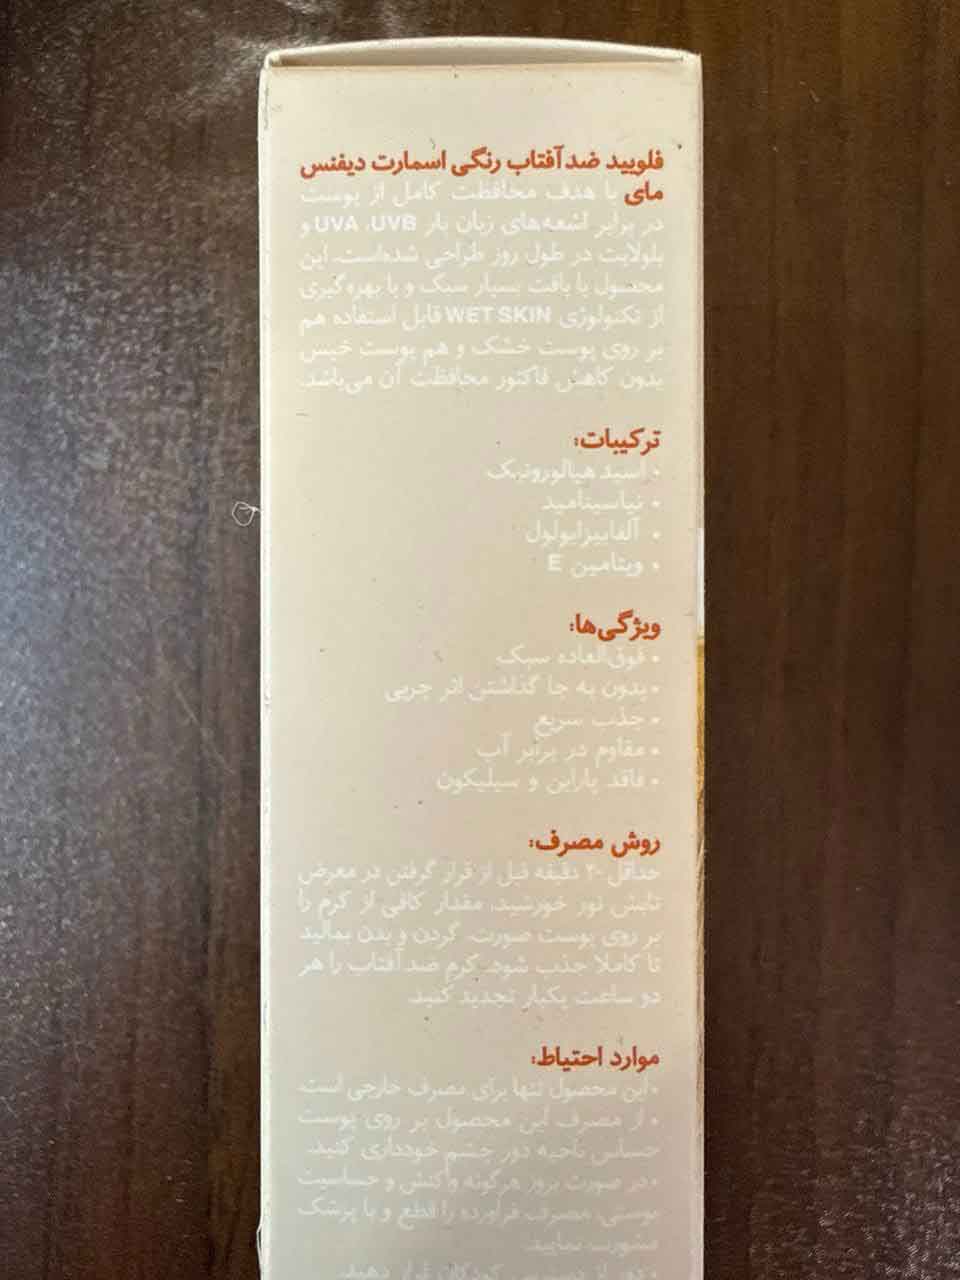 فلویید ضد آفتاب رنگی اسمارت دیفنس
مای با هدف محافظت کامل از پوست
در برابر اشعه‌های زیان بار UVA ،UVB و
بلولایت در طول روز طراحی شده‌است. این
محصول با بافت بسیار سبک و با بهره‌گیری
از تکنولوژی WET SKIN قابل استفاده هم
بر روی پوست خشک و هم پوست خیس
بدون کاهش فاکتور محافظت آن می‌باشد.
ترکیبات:
• اسید هیالورونیک
• نیاسینامید
• آلفابیزابولول
• ویتامین E
ویژگی‌ها:
• فوق‌العاده سبک
• بدون به جا گذاشتن اثر چربی
• جذب سریع
• مقاوم در برابر آب
• فاقد پارابن و سیلیکون
روش مصرف:
حداقل ۲۰ دقیقه قبل از قرار گرفتن در معرض
تابش نور خورشید، مقدار کافی از کرم را
بر روی پوست صورت، گردن و بدن بمالید
تا کاملا جذب شود. کرم ضدآفتاب را هر
دو ساعت یکبار تجدید کنید.
موارد احتیاط:
• این محصول تنها برای مصرف خارجی است.
• از مصرف این محصول بر روی پوست
حساس ناحیه دور چشم خودداری کنید.
• در صورت بروز هرگونه واکنش و حساسیت
پوستی، مصرف فرآورده را قطع و با پزشک
مشورت نمایید.
• دور از دسترس کودکان قرار دهید.